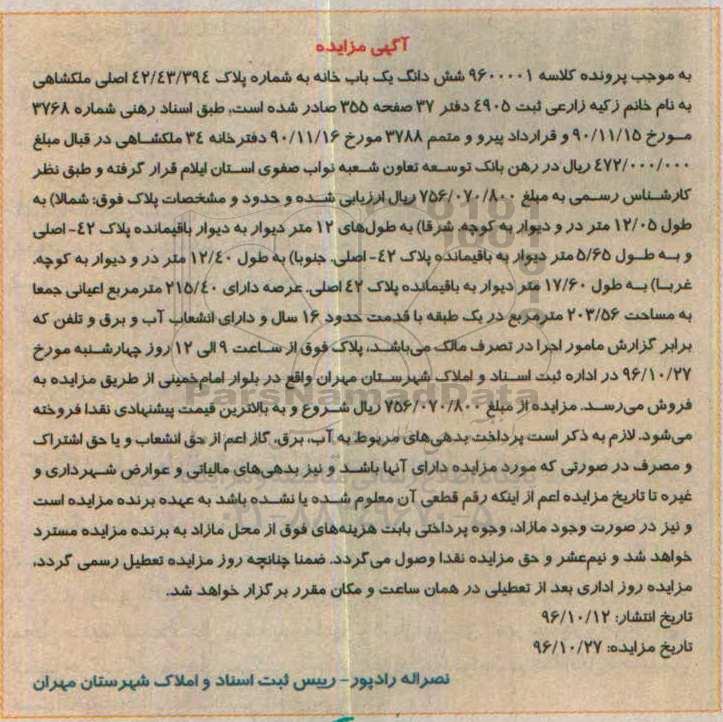 آگهی مزایده
به موجب پرونده کلاسه ۹۶۰۰۰۰۱ شش دانگ یک باب خانه به شماره پلاک ۴۲/۴۳/۳۹۴ اصلی ملکشاهی
به نام خانم زکیه زارعی ثبت ۴۹۰۵ دفتر ۳۷ صفحه ۳۵۵ صادر شده است، طبق اسناد رهنی شماره ۳۷۶۸
مورخ ۹۰/۱۱/۱۵ و قرارداد پیرو و متمم ۳۷۸۸ مورخ ۹۰/۱۱/۱۶ دفترخانه ۳۴ ملکشاهی در قبال مبلغ
۴۷۲/۰۰۰/۰۰۰ ریال در رهن بانک توسعه تعاون شعبه نواب صفوی استان ایلام قرار گرفته و طبق نظر
کارشناس رسمی به مبلغ ۷۵۶/۰۷۰/۸۰۰ ریال ارزیابی شده و حدود و مشخصات پلاک فوق: شمالا) به
طول ۱۲/۰۵ متر در و دیوار به کوچه. شرقا) به طول‌های ۱۲ متر دیوار به دیوار باقیمانده پلاک ۴۲- اصلی
و به طول ۵/۶۵ متر دیوار به باقیمانده پلاک ۴۲- اصلی. جنوبا) به طول ۱۲/۴۰ متر در و دیوار به کوچه.
غربا) به طول ۱۷/۶۰ متر دیوار به باقیمانده پلاک ۴۲ اصلی. عرصه دارای ۲۱۵/۴۰ مترمربع اعیانی جمعا
به مساحت ۲۰۳/۵۶ مترمربع در یک طبقه با قدمت حدود ۱۶ سال و دارای انشعاب آب و برق و تلفن که
برابر گزارش مامور اجرا در تصرف مالک می‌باشد، پلاک فوق از ساعت ۹ الی ۱۲ روز چهارشنبه مورخ
۹۶/۱۰/۲۷ در اداره ثبت اسناد و املاک شهرستان مهران واقع در بلوار امام‌خمینی از طریق مزایده به
فروش می‌رسد. مزایده از مبلغ ۷۵۶/۰۷۰/۸۰۰ ریال شروع و به بالاترین قیمت پیشنهادی نقدا فروخته
می‌شود. لازم به ذکر است پرداخت بدهی‌های مربوط به آب، برق، گاز اعم از حق انشعاب و یا حق اشتراک
و مصرف در صورتی که مورد مزایده دارای آنها باشد و نیز بدهی‌های مالیاتی و عوارض شهرداری و
غیره تا تاریخ مزایده اعم از اینکه رقم قطعی آن معلوم شده یا نشده باشد به عهده برنده مزایده است
و نیز در صورت وجود مازاد، وجوه پرداختی بابت هزینه‌های فوق از محل مازاد به برنده مزایده مسترد
خواهد شد و نیم‌عشر و حق مزایده نقدا وصول می‌گردد. ضمنا چنانچه روز مزایده تعطیل رسمی گردد،
مزایده روز اداری بعد از تعطیلی در همان ساعت و مکان مقرر برگزار خواهد شد.
تاریخ انتشار: ۹۶/۱۰/۱۲
تاریخ مزایده: ۹۶/۱۰/۲۷
نصراله رادپور- رییس ثبت اسناد و املاک شهرستان مهران
ParsNamadData